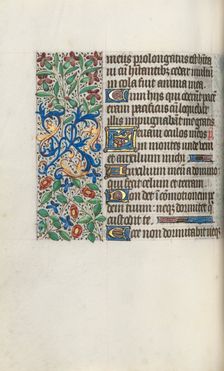 meus prolongatus est habita
ui cū hitantibz cedar multū
in cola fuit anima mea
Cum hijs qui oderunt pacem
eram pacificus cū loquebar
illis impugnabāt me gratis
Leuaui oculos meos i
in montes unde ben
et auxilium michi
Auxiliū meū a domino
qui fecit celum et terram
Non det ī cōmotionem pe
dem tuum neqz dormitet q̄
custodit te
Ecce non dormitabit neqz